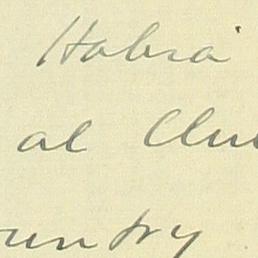 Habra
al Clu
ountry